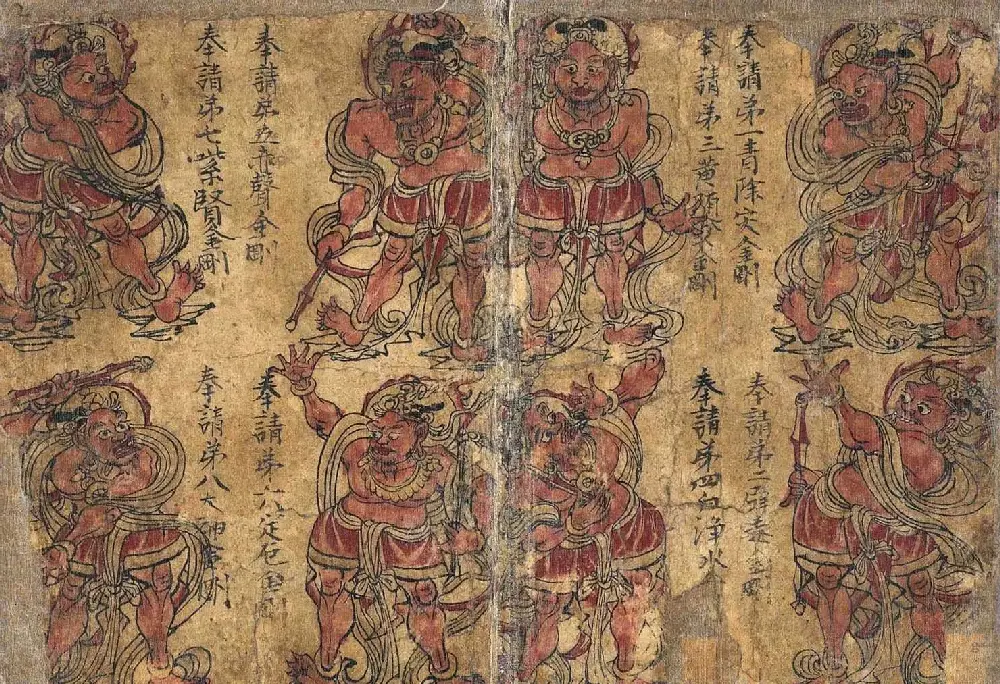 奉請弟一青除灾金剛
奉請弟三黃隨求金剛
奉請弟五赤聲金剛
奉請弟七紫賢金剛
奉請弟二辟毒金剛
奉請弟四白淨水
奉請弟六定厄金剛
奉請弟八大神金剛